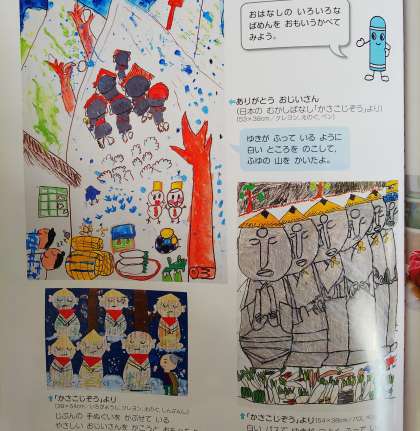 おはなしの いろいろな
ばめんを おもいうかべて
みよう。
ありがとう おじいさん
(日本の むかしばなし「かさこじぞう」より)
(53×38cm/クレヨン、えのぐ、ペン)
ゆきが ふって いる ように
白い ところを のこして、
ふゆの 山を かいたよ。
「かさこじぞう」より
じぶんの 手ぬぐいを かぶせて いる
やさしい おじいさんを かこうと
「かさこじぞう」より
白い パスで ゆきが